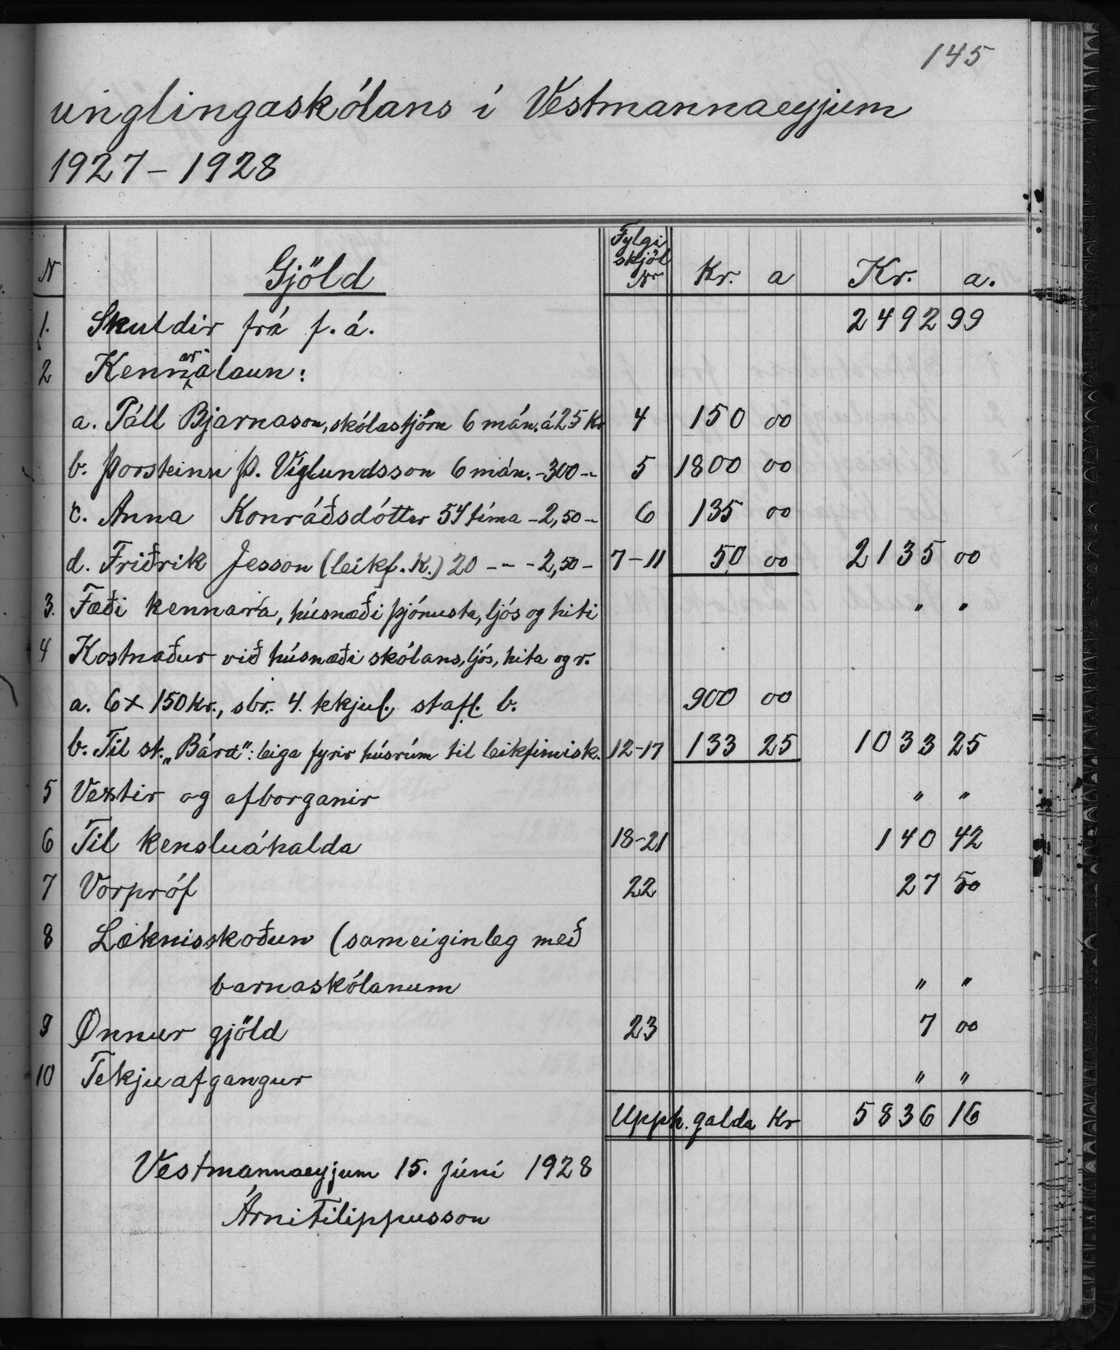 145
unglingaskólans í Vestmannaeyjum
1927 – 1928
N Gjöld Fylgiskjöl Nr Kr. a Kr. a.
1. Skuldir frá f. á. 2492 99
2 Kennaralaun:
a. Páll Bjarnason, skólastjóra 6 mán. á 25 Kr 4 150 00
b. Þorsteinn Þ. Víglundsson 6 mán. -300-- 5 1800 00
c. Anna Konráðsdóttir 54 tíma -2,50-- 6 135 00
d. Friðrik Jesson (leikf. K.) 20 -- - -2,50- 7-11 50 00 2135 00
3. Fæði kennara, húsnæði þjónusta, ljós og hiti " "
4 Kostnaður við húsnæði skólans, ljós, hita og r.
a. 6 x 150 Kr., sbr. 4. tekjul. stafl. b. 900 00
b. Til st. „Bára": leiga fyrir húsrúm til leikfimisk. 12-17 133 25 1033 25
5 Vextir og afborganir " "
6 Til kensluáhalda 18-21 140 42
7 Vorpróf 22 27 50
8 Læknisskoðun (sameiginleg með
barnaskólanum " "
9 Önnur gjöld 23 7 00
10 Tekjuafgangur " "
Upph. galda Kr 5836 16
Vestmannaeyjum 15. júní 1928
Árni Filippusson